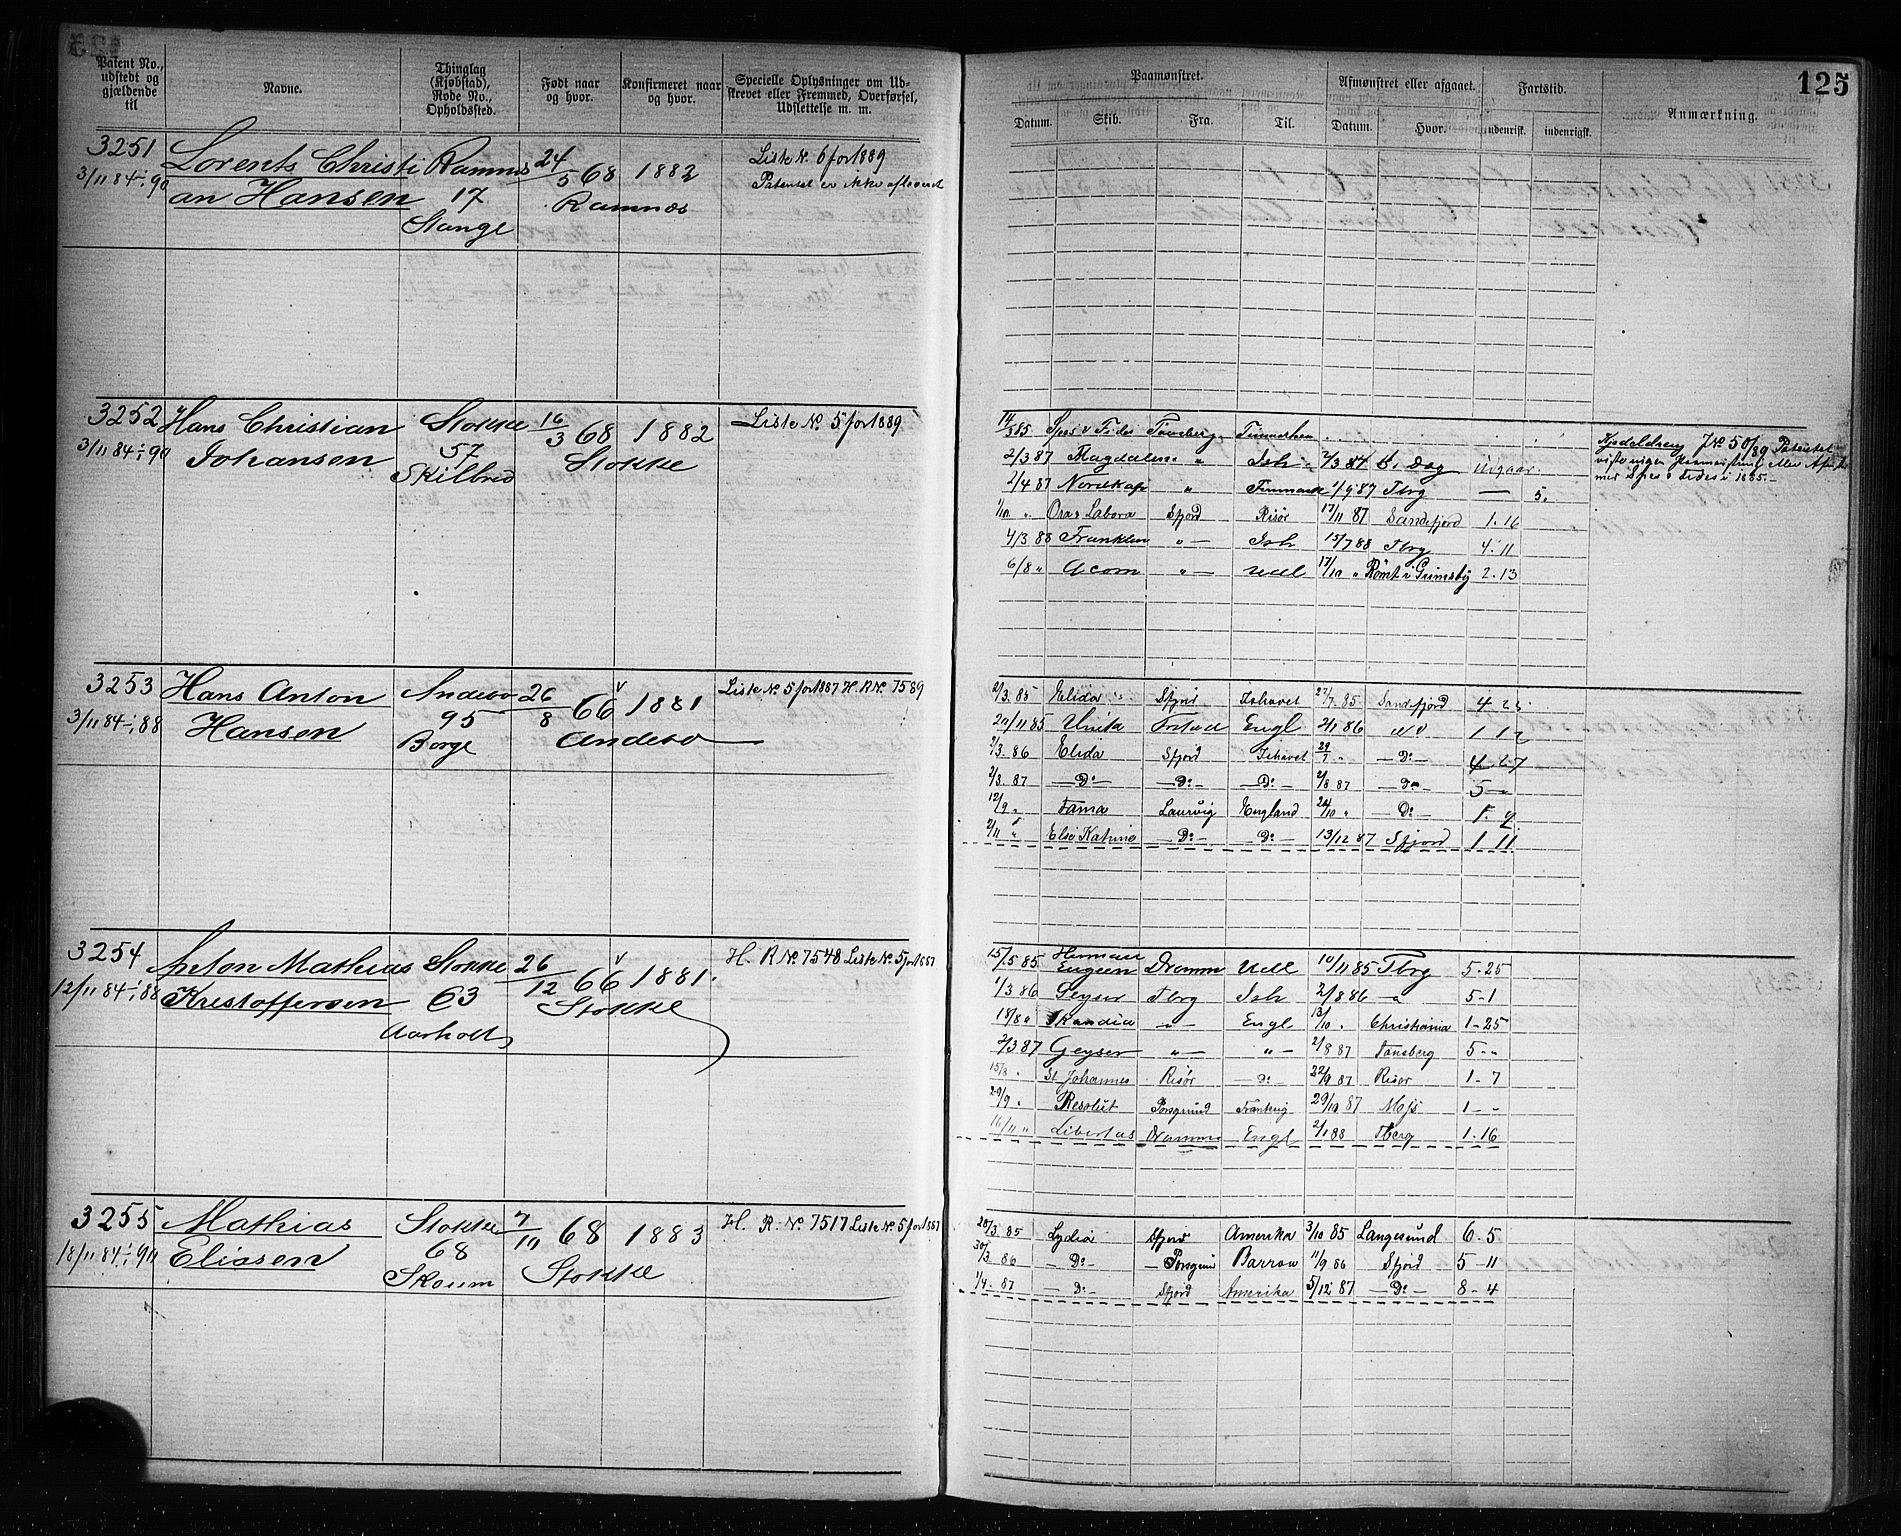 125
Patent No., udstedt og gjældende til
Navne.
Thinglag (Kjøbstad), Rode No., Opholdssted.
Født naar og hvor.
Konfirmeret naar og hvor.
Specielle Oplysninger om Udskrevet eller Fremmed, Overførsel, Udslettelse m. m.
Paamønstret.
Afmønstret eller afgaaet.
Fartstid.
Anmærkning.
Datum. Skib. Fra. Til. Datum. Hvor. udenrigsk. indenrigsk.
3251 Lorents Christi Ramnes 24/5 68 1882 Liste N. 6 for 1889
3/11 84 90 an Hansen 17 Ramnes Patentet er ikke afleveret
Stange
3252 Hans Christian Stokke 16/3 68 1882 Liste N. 5 for 1889
3/11 84 90 Johansen 57 Stokke
Skilbred
14/3 85 Spes & Fides Tønsberg
2/3 87 Magdalena " Ish
2/4 87 Nordkap " Finmark 1/9 87 Tbrg — 5.
1/10 " Ora & Labora Sfjord Risør 17/11 87 Sandefjord 1.16
4/3 88 Franklin " — Ish 15/7 88 Tbrg 4.11
6/8 " Acorn " — Udl 17/10 " Rømt i Grimsby 2.13
Patentet
3253 Hans Anton Andebo 26/8 66 1881 Liste N. 5 for 1887 H. R N. 7589
3/11 84 88 Hansen 95 Andebo
Borge
2/3. 85 Elida Sfjord Ishavet 27/7. 85 Sandefjord 4
20/11 85 Unita Engl 2/1 86 1 12
2/3. 86 Elida Sfjord Ishavet 29/7 " — Do — 4-27
2/3. 87 — Do — — Do — — Do — 2/8 87 — Do 5 -
12/9 " Fama Laurvig England 24/10 " — Do 1. 9
2/11 " Else Katrine — Do — — Do — 13/12 87 Sfjord 1 11
3254 Anton Mathias Stokke 26/12 66 1881. H. R N. 7548 Liste N. 5 for 1887
12/11 84 88 Kristoffersen 63 Stokke
Aarholt
15/5 85 Herman Dramm Udl 10/11 85 Tbrg 5-25
1/3 86 Geyser Tbrg Ish 2/8 86 " 5-1
18/8 " Skandia " — Engl 13/10 . Christiania 1-25
2/3 87 Geyser " — " — 2/8 87 Tønsberg 5-"
15/8 . St Johannes Risør — Do — 22/9 87 Risør 1-7
29/9 . Resolut Porsgrund Frankrig 29/10 87 Moss 1 - -
16/11 " Libertas Dramm Engl 2/1 88 Tberg 1.16
3255 Mathias Stokke 7/10 68 1883 H. R. N. 7517 Liste N. 5 for 1887
18/11 84 90 Eliasen 68 Stokke
Skoum
28/3. 85 Lydia Sfjord Amerika 3/10 85 Langesund 6.5
30/3. 86 — Do — Porsgrun Barrow 11/9 86 Sfjord 5 - 11
1/4. 87 — Do Sfjord Amerika 5/12 87 — Do — 8-4